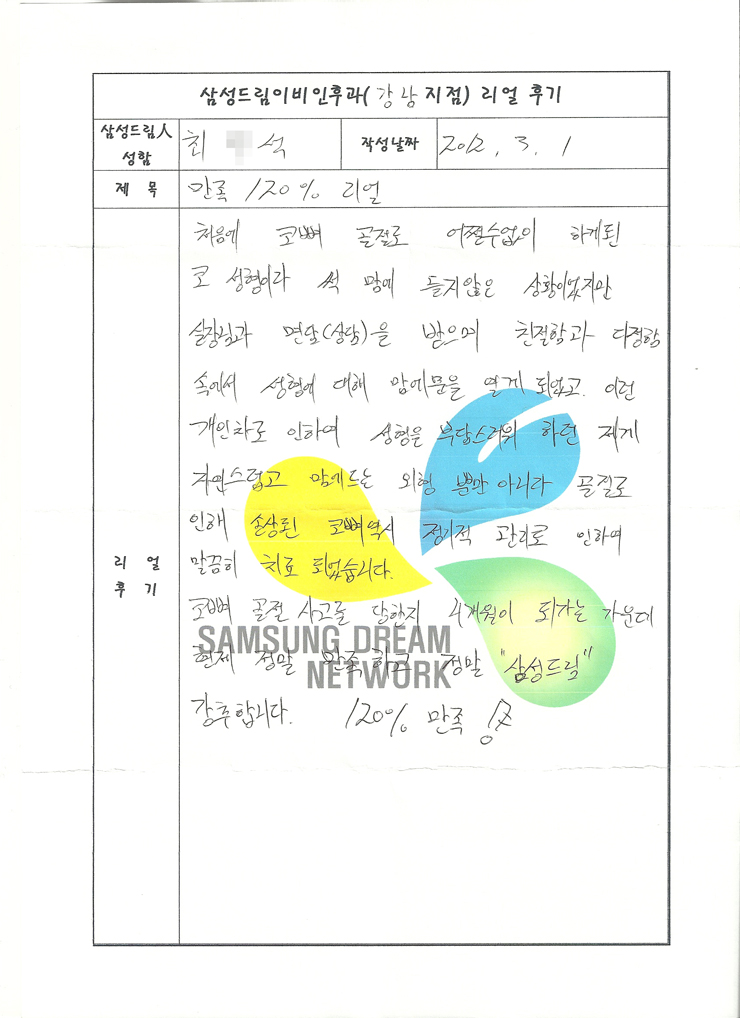 삼성드림이비인후과(강남지점) 리얼 후기
삼성드림人
성함
최 석
작성날짜
2012. 3. 1
제 목
만족 120% 리얼
리 얼
후 기
처음에 코뼈 골절로 어쩔수없이 하게된
코 성형이라 썩 맘에 들지않은 상황이었지만
실장님과 면담(상담)을 받으며 친절함과 다정함
속에서 성형에 대해 맘에문을 열게 되었고. 이런
개인차로 인하여 성형은 부담스러워 하던 제게
자연스럽고 맘에드는 외형 뿐만 아니라 골절로
인해 손상된 코뼈역시 정기적 관리로 인하여
말끔히 치료 되었습니다.
코뼈 골절 사고를 당한지 4개월이 되가는 가운데
현제 정말 만족하고 정말 "삼성드림"
강추합니다. 120% 만족
SAMSUNG DREAM
NETWORK